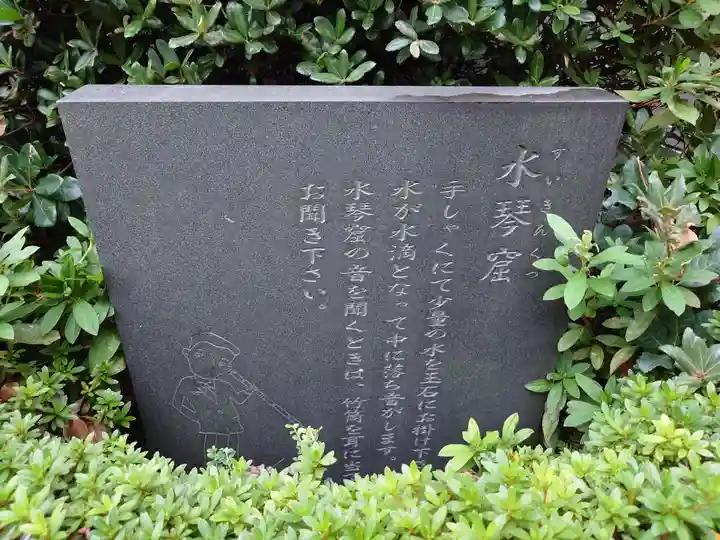 水琴窟
すいきんくつ
手しゃくにて少量の水を玉石にお掛け下
水が水滴となって中に落ち音がします。
水琴窟の音を聞くときは、竹筒を耳に当
お聞き下さい。